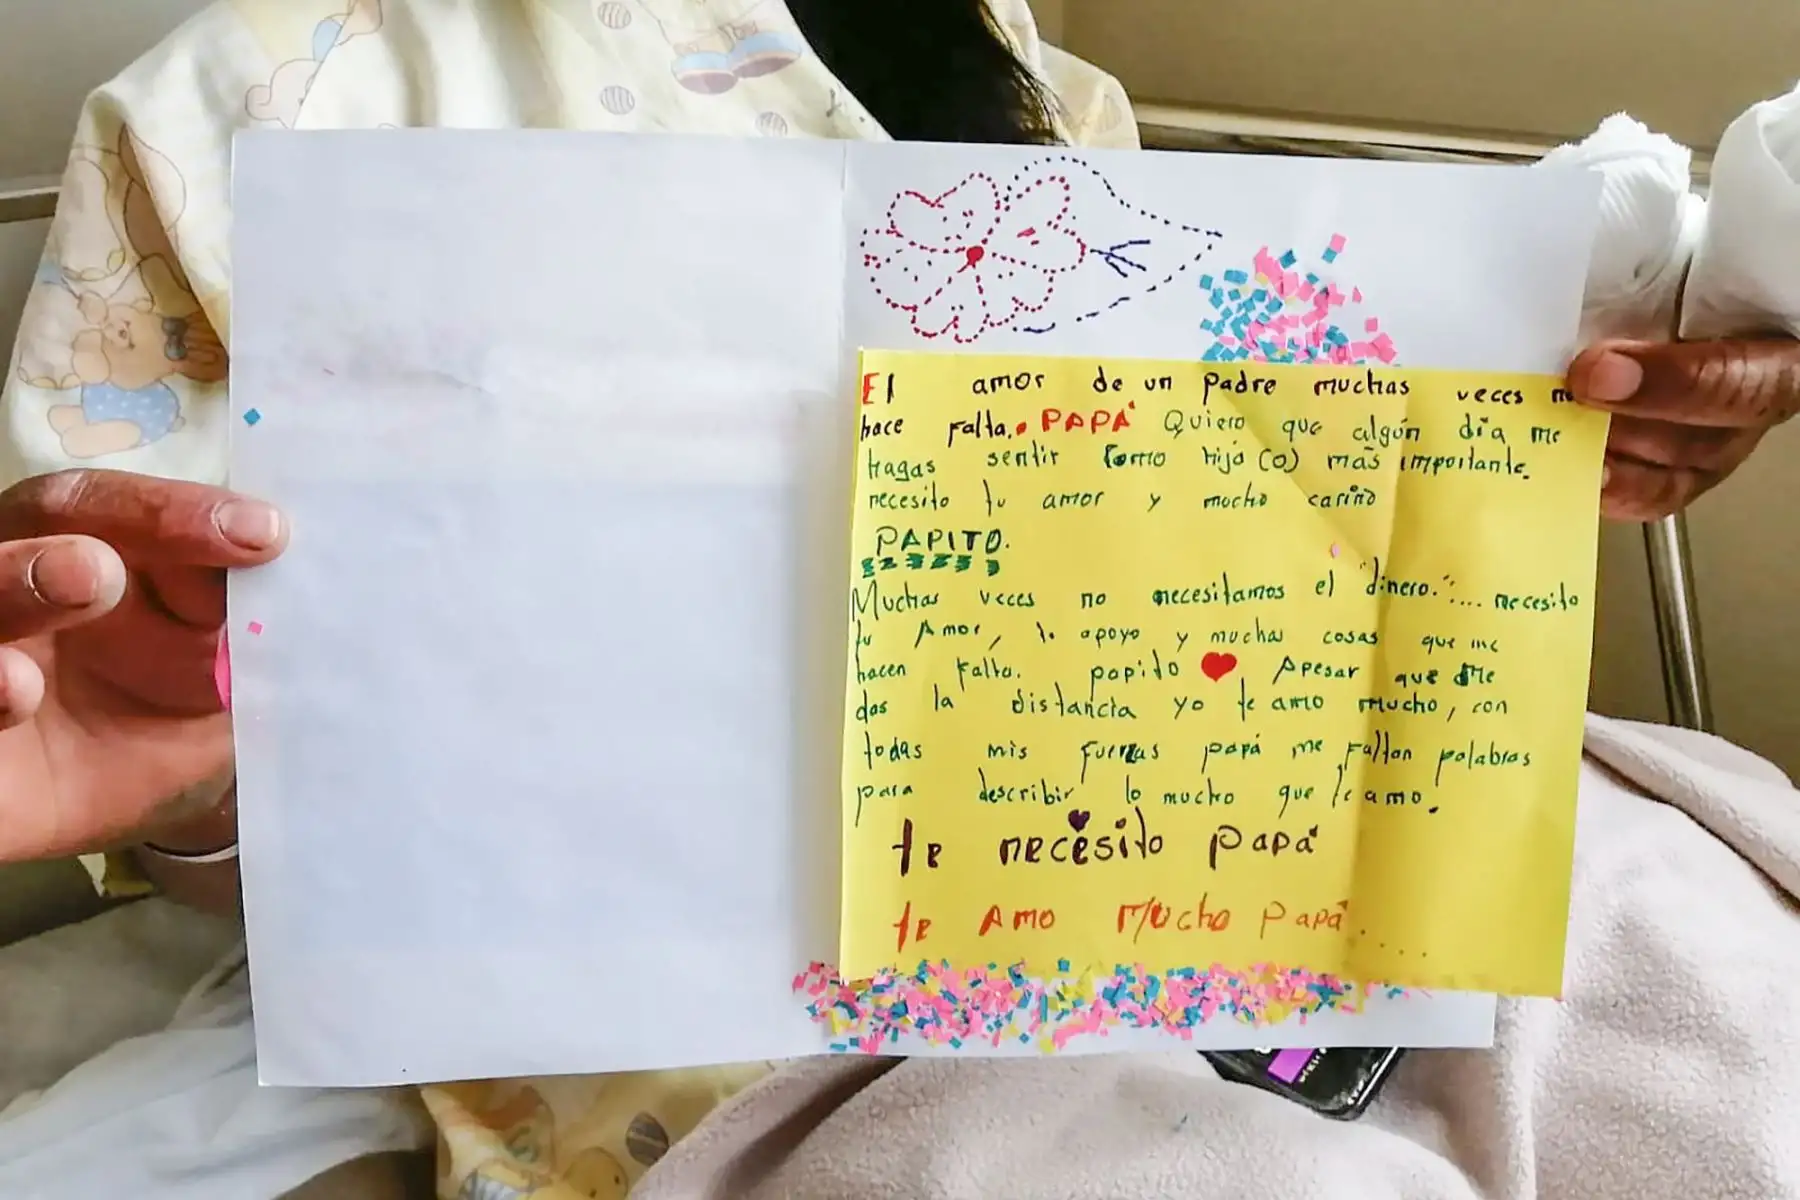 El amor de un padre muchas veces no
hace falta. PAPÁ Quiero que algún día me
hagas sentir como hijo (o) más importante.
necesito tu amor y mucho cariño
PAPITO.
Muchas veces no necesitamos el "dinero."... necesito
tu Amor, tu apoyo y muchas cosas que me
hacen falta. papito Apesar que me
das la distancia yo te amo mucho, con
todas mis fuerzas papá me faltan palabras
para describir lo mucho que te amo.
te necesito papá
te Amo Mucho Papá.....